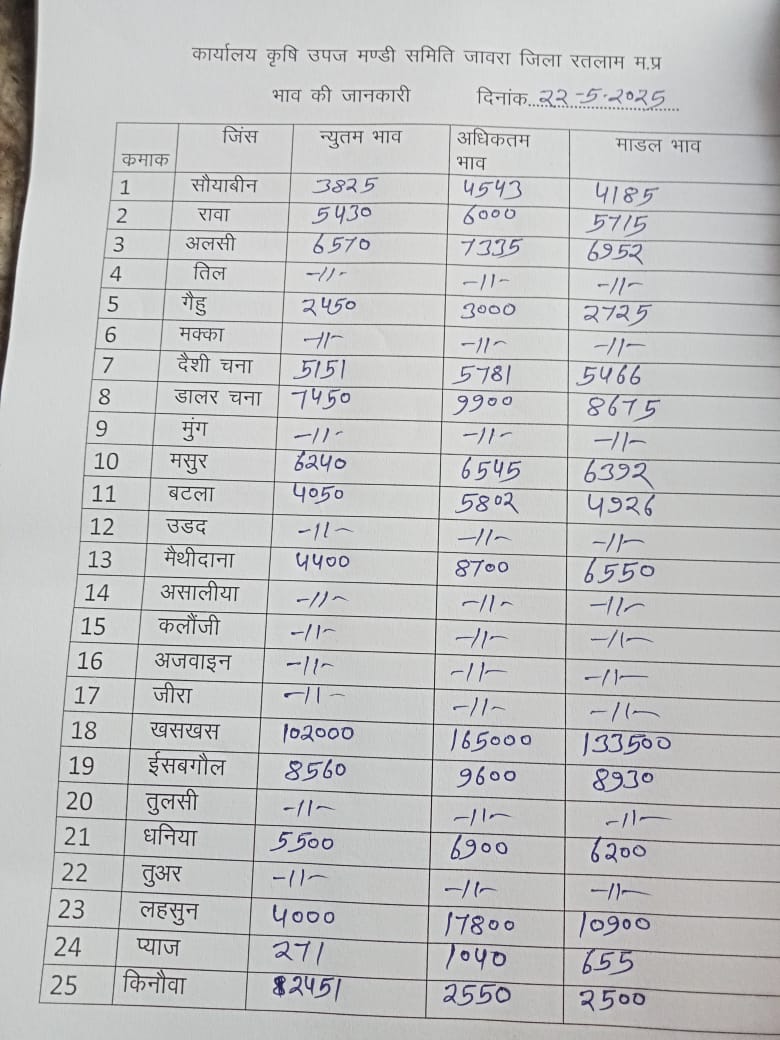 कार्यालय कृषि उपज मण्डी समिति जावरा जिला रतलाम म.प्र
भाव की जानकारी दिनांक..22-5-2025
कमाक जिंस न्युतम भाव अधिकतम भाव माडल भाव
1 सौयाबीन 3825 4543 4185
2 रावा 5430 6000 5715
3 अलसी 6570 7335 6952
4 तिल -11- -11- -11-
5 गैहु 2450 3000 2725
6 मक्का -11- -11- -11-
7 दैशी चना 5151 5781 5466
8 डालर चना 7450 9900 8675
9 मुंग -11- -11- -11-
10 मसुर 6240 6545 6392
11 बटला 4050 5802 4926
12 उडद -11- -11- -11-
13 मैथीदाना 4400 8700 6550
14 असालीया -11- -11- -11-
15 कलौंजी -11- -11- -11-
16 अजवाइन -11- -11- -11-
17 जीरा -11- -11- -11-
18 खसखस 102000 165000 133500
19 ईसबगौल 8560 9600 8930
20 तुलसी -11- -11- -11-
21 धनिया 5500 6900 6200
22 तुअर -11- -11- -11-
23 लहसुन 4000 17800 10900
24 प्याज 271 1040 655
25 किनौवा 2451 2550 2500